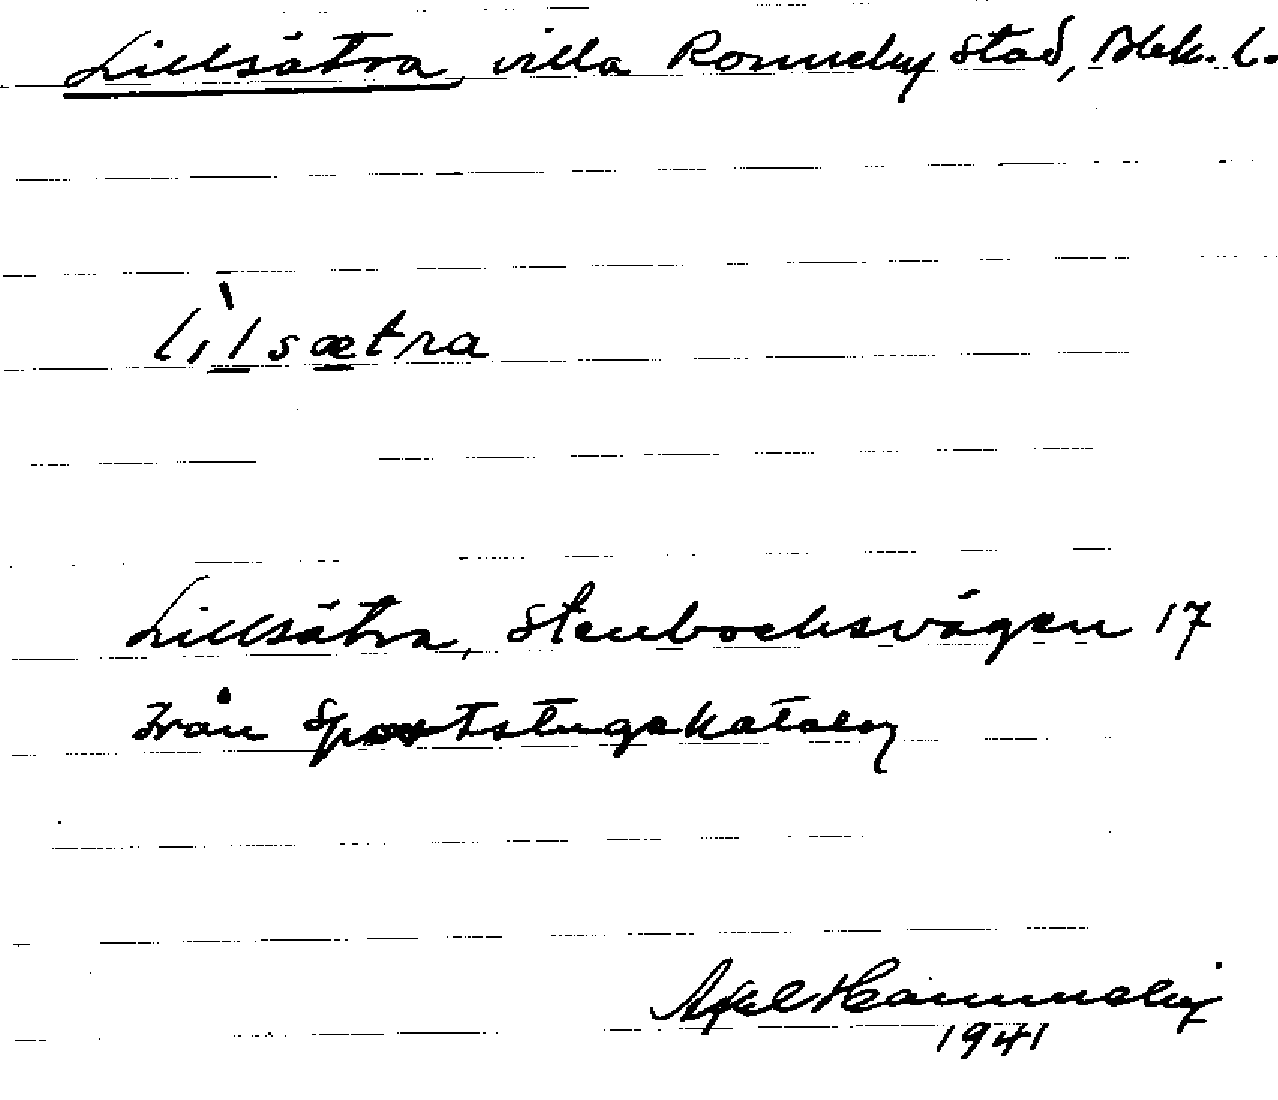 Lillsätra, villa Ronneby stad, Blek. l.
lìlsætra
Lillsätra, Stenbocksvägen 17
Från Sportstugekatalog
Axel Hammneby
1941